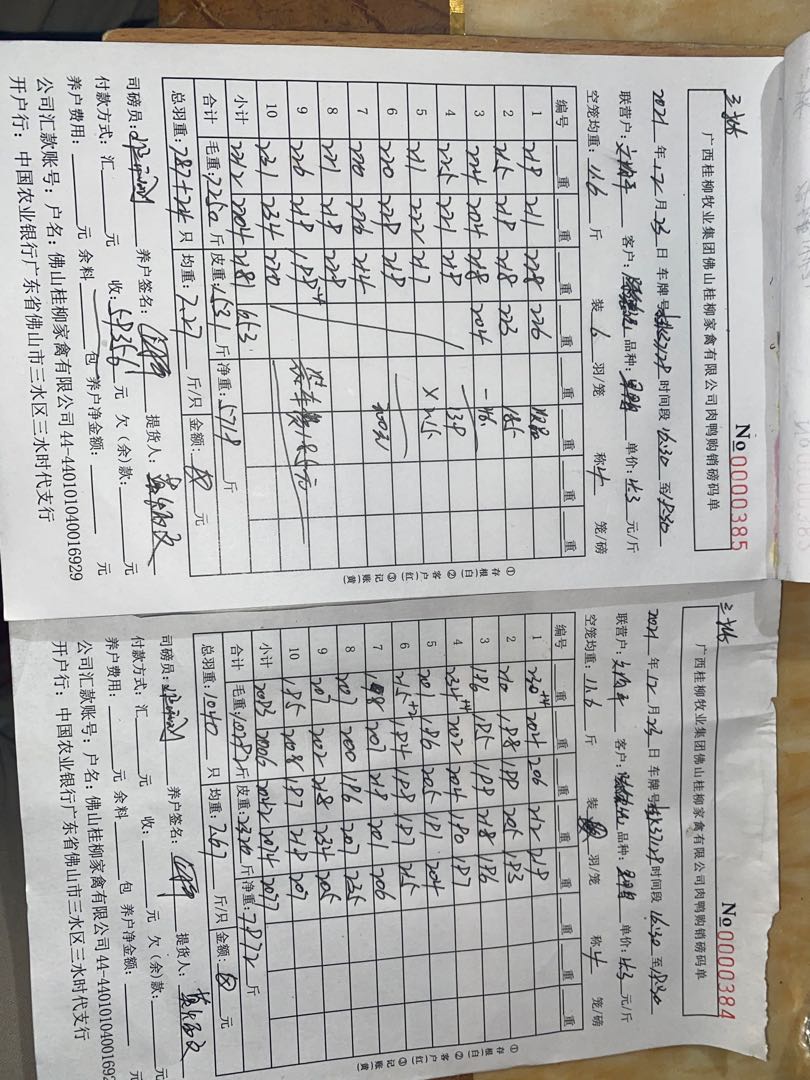 广西桂柳牧业集团佛山桂柳家禽有限公司肉鸭购销磅码单
No 0000385
2021 年 12 月 23 日 车牌号 时间段 16:30 至 18:30
联营户: 客户: 品种: 单价: 4.3 元/斤
空笼均重: 11.6 斤 装 6 羽/笼 称 4 笼/磅
编号 重 重 重 重 重 重 重
1 218 211 228 226
2 215 218 218 223 185
3 224 204 218 204 -46
4 225 221 218 139
5 211 222 217 ×215
6 220 228 218
7 220 226 244
8 221 218 228
9 226 218 195
10 231 234 220
小计 2212 2204 2181 653
合计 毛重: 7250 斤 皮重: 1531 斤 净重: 5719 斤
总羽重: 787+24 只 均重: 7.27 斤/只 金额: 元
司磅员: 养户签名: 提货人:
付款方式: 汇 元 收: 59356 元 欠(余)款: 元
养户费用: 元 余料 包 养户净金额: 元
公司汇款账号: 户名: 佛山桂柳家禽有限公司 44-440101040016929
开户行: 中国农业银行广东省佛山市三水区三水时代支行
①存根(白) ②客户(红) ③记账(黄)
广西桂柳牧业集团佛山桂柳家禽有限公司肉鸭购销磅码单
No 0000384
2021 年 12 月 23 日 车牌号 时间段 16:30 至 18:30
联营户: 客户: 品种: 单价: 4.3 元/斤
空笼均重: 11.6 斤 装 羽/笼 称 4 笼/磅
编号 重 重 重 重 重 重 重
1 230+4 204 206 212 218
2 210 198 199 205 193
3 196 195 199 218 196
4 234+4 202 204 190 197
5 201 196 205 191 204
6 215+2 194 198 197 215
7 198 207 218 201 206
8 207 200 196 207 235
9 207 202 218 234 205
10 195 208 197 218 207
小计 2083 2006 2042 2014 2077
合计 毛重: 10292 斤 皮重: 2320 斤 净重: 7972 斤
总羽重: 1040 只 均重: 7.67 斤/只 金额: 元
司磅员: 养户签名: 提货人:
付款方式: 汇 元 收: 元 欠(余)款: 元
养户费用: 元 余料 包 养户净金额: 元
公司汇款账号: 户名: 佛山桂柳家禽有限公司 44-4401010400169
开户行: 中国农业银行广东省佛山市三水区三水时代支行
①存根(白) ②客户(红) ③记账(黄)